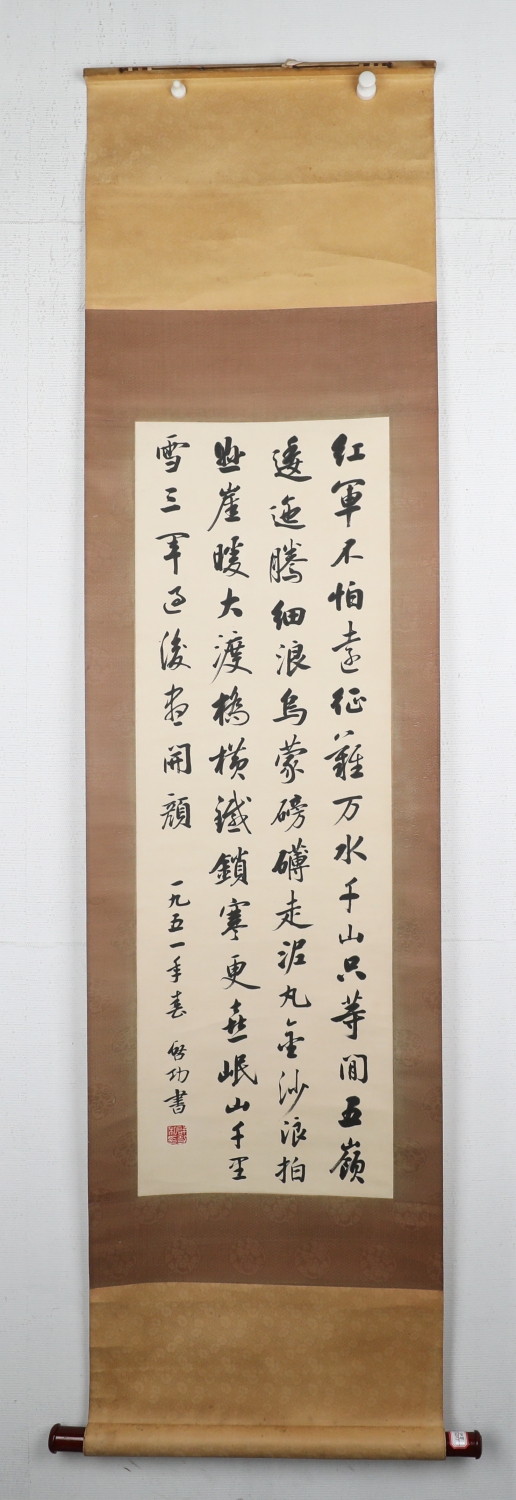 红軍不怕遠征難万水千山只等閒五嶺
逶迤騰細浪烏蒙磅礴走泥丸金沙浪拍
懸崖暖大渡橋橫鐵鎖寒更喜岷山千里
雪三軍過後盡開顏
一九五一年春 啟功書